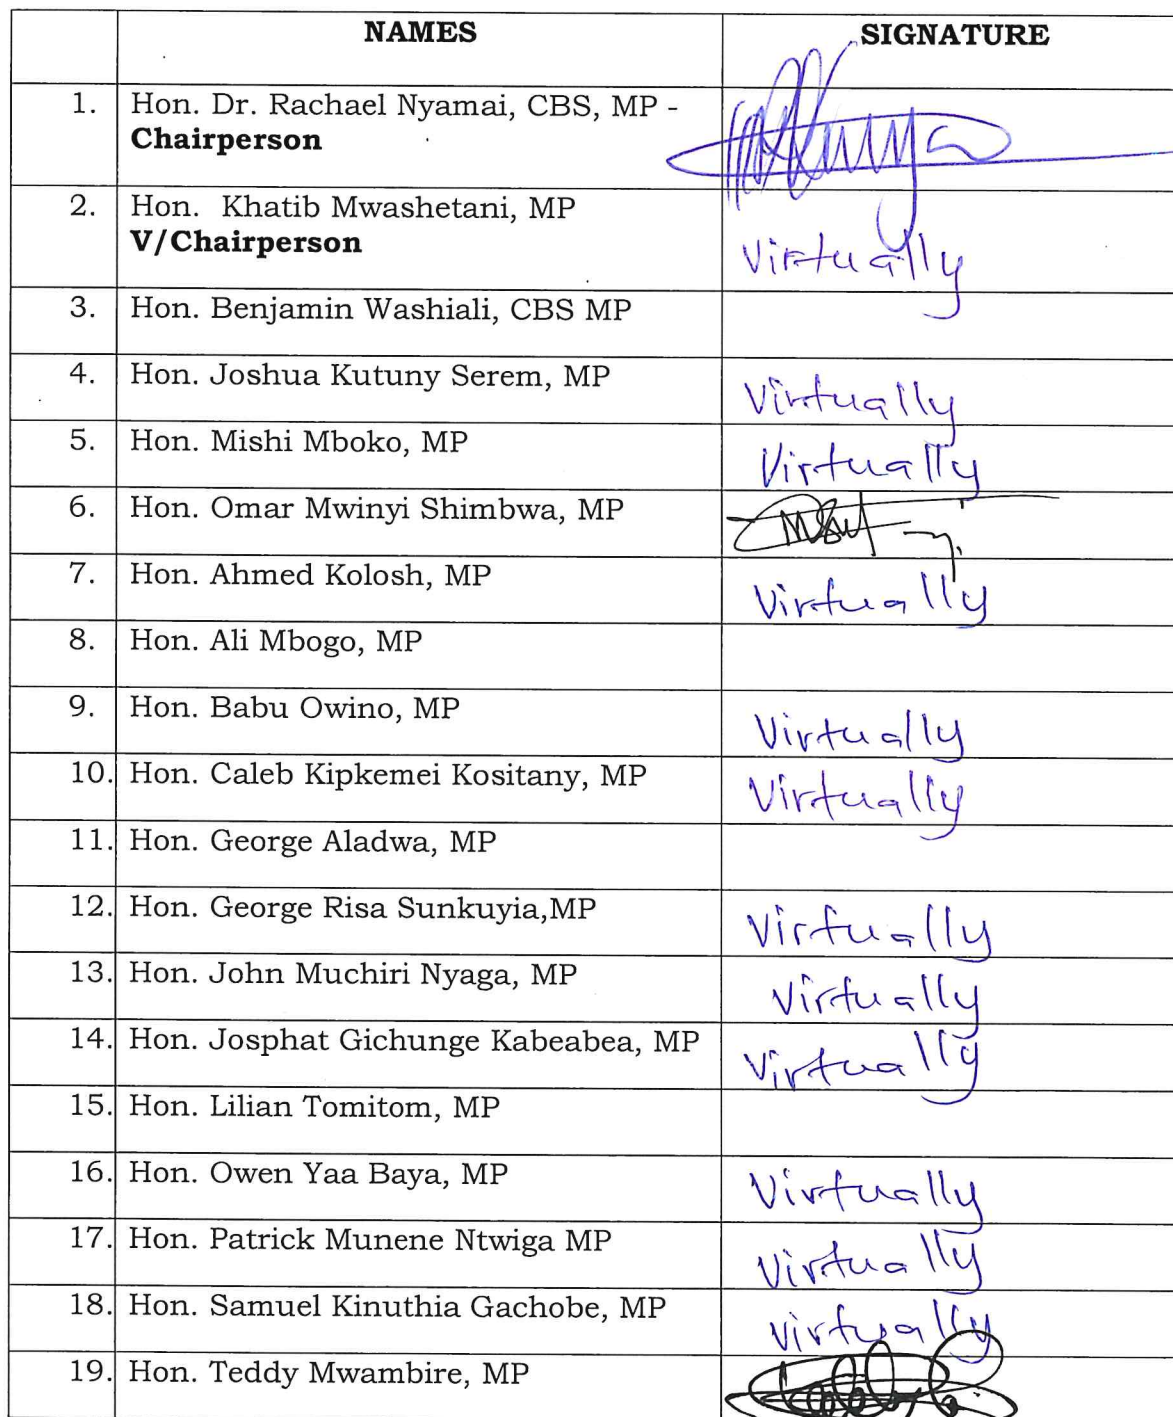 NAMES SIGNATURE
1. Hon. Dr. Rachael Nyamai, CBS, MP -
Chairperson
2. Hon. Khatib Mwashetani, MP
V/Chairperson Virtually
3. Hon. Benjamin Washiali, CBS MP
4. Hon. Joshua Kutuny Serem, MP Virtually
5. Hon. Mishi Mboko, MP Virtually
6. Hon. Omar Mwinyi Shimbwa, MP
7. Hon. Ahmed Kolosh, MP Virtually
8. Hon. Ali Mbogo, MP
9. Hon. Babu Owino, MP Virtually
10. Hon. Caleb Kipkemei Kositany, MP Virtually
11. Hon. George Aladwa, MP
12. Hon. George Risa Sunkuyia,MP Virtually
13. Hon. John Muchiri Nyaga, MP Virtually
14. Hon. Josphat Gichunge Kabeabea, MP Virtually
15. Hon. Lilian Tomitom, MP
16. Hon. Owen Yaa Baya, MP Virtually
17. Hon. Patrick Munene Ntwiga MP Virtually
18. Hon. Samuel Kinuthia Gachobe, MP virtually
19. Hon. Teddy Mwambire, MP